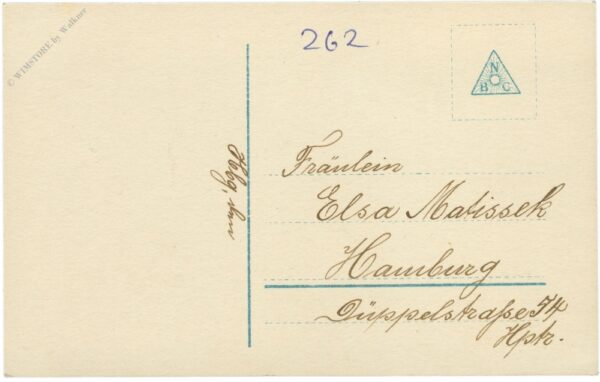 © WIMSTORE by Walkner
262
N
B C
Hbg, den
Fräulein
Elsa Matissek
Hamburg
Düppelstraße 54
Hptr.